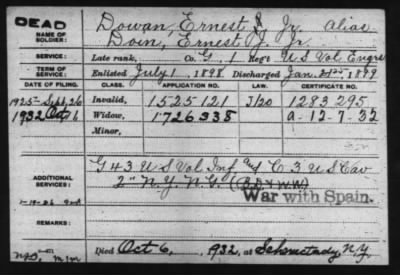 DEAD
NAME OF SOLDIER:
Dowan, Ernest J. Jr. Alias
Doin, Ernest J. Jr
SERVICE:
Late rank, Co. G, 1 Reg't U S Vol Engrs
TERM OF SERVICE:
Enlisted July 1 1898. Discharged Jan. 1899
DATE OF FILING. CLASS. APPLICATION NO. LAW. CERTIFICATE NO.
1925-Sept, 26 Invalid, 1525121 J/20 1283295
1932 Oct 16 Widow, 1726338 a-12-7-32
Minor,
ADDITIONAL SERVICES:
G 43 U S Vol Inf and C 3 U S Cav
2" N.Y. N.G. (B.D. & W.W.)
War with Spain.
REMARKS:
Died Oct 6, 1932, at Schenectady, N.Y.